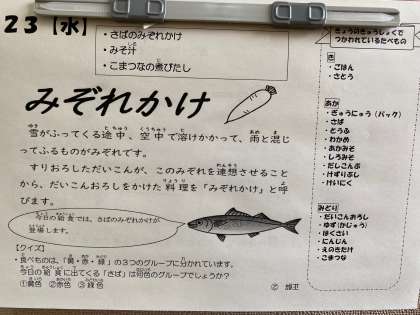 23【水】
・さばのみぞれかけ
・みそ汁
・こまつなの煮びたし
みぞれかけ
雪がふってくる途中、空中で溶けかかって、雨と混じ
ってふるものがみぞれです。
すりおろしただいこんが、このみぞれを連想させること
から、だいこんおろしをかけた料理を「みぞれかけ」と呼
びます。
今日の給食では、さばのみぞれかけが、
登場します。
【クイズ】
・食べものは、「黄・赤・緑」の3つのグループに分かれています。
今日の給食に出てくる「さば」は何色のグループでしょうか?
①黄色 ②赤色 ③緑色
きょうのきゅうしょくで
つかわれているたべもの
き
・ごはん
・さとう
あか
・ぎゅうにゅう(パック)
・さば
・とうふ
・わかめ
・あかみそ
・しろみそ
・だしこんぶ
・けずりぶし
・けいにく
みどり
・だいこんおろし
・ゆず(かじゅう)
・はくさい
・にんじん
・えのきだけ
・こまつな